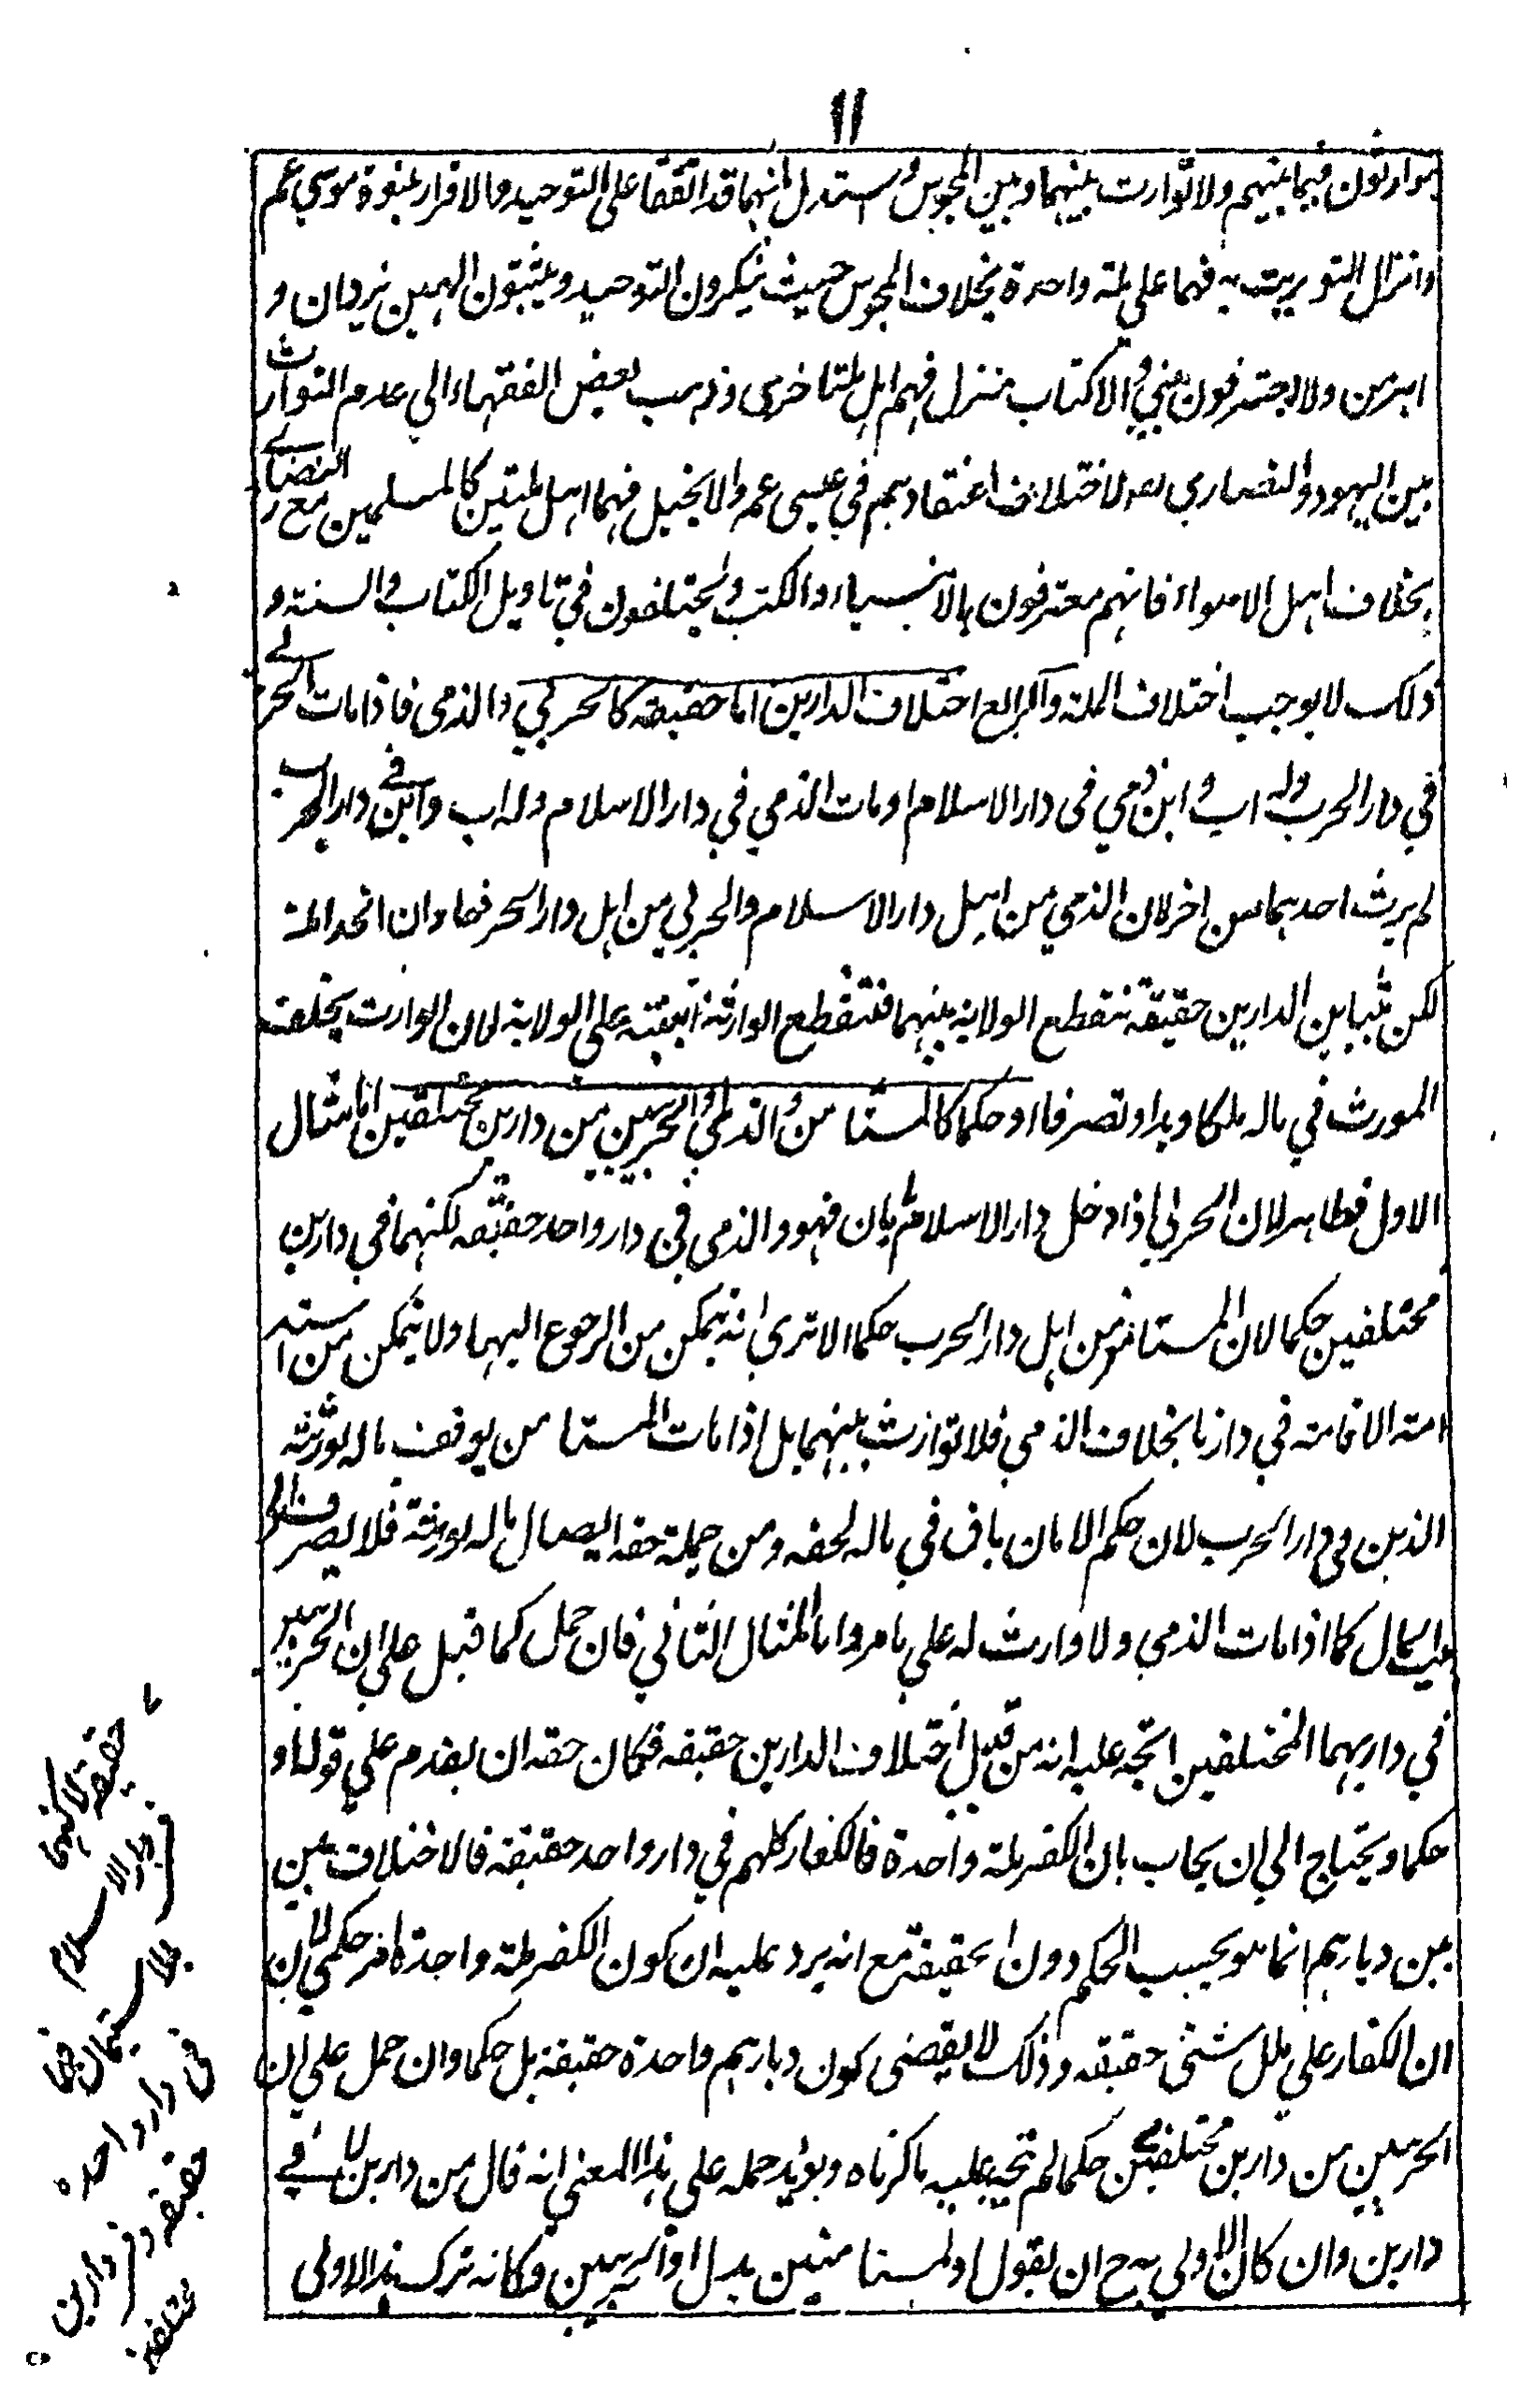 ١١
يتوارثون فيما بينهم ولا توارث بينهما وبين المجوس واستدل انهما قد اتفقا على التوحيد والاقرار بنبوة موسي عم
وانزال التوريت به فهما علي ملة واحدة بخلاف المجوس حيث ينكرون التوحيد ويثبتون الهين يزدان و
اهرمن ولا يعترفون بنبي والا كتاب منزل فهم اهل ملتا خرى وذهب بعض الفقهاء الي عدم التوارث
بين اليهود والنصارى لاختلاف اعتقادهم في عيسى عم والانجيل فهما اهل ملتين كالمسلمين مع النصارى
بخلاف اهل الاهواء فانهم معترفون بالانبياء والكتب ويختلفون في تاويل الكتاب والسنة و
ذلك لا يوجب اختلاف الملة والرابع اختلاف الدارين اما حقيقة كالحربي والذمي فاذا مات الحربي
في دار الحرب وله اب و ابن ذمي في دار الاسلام او مات الذمي في دار الاسلام وله اب وابن في دار الحرب
لم يرث احدهما من اخر لان الذمي من اهل دار الاسلام والحربي من اهل دار الحرب فهما وان اتحد الملة
لكن بتباين الدارين حقيقة تنقطع الولاية بينهما فتنقطع الوارثة المبتنية على الولاية لان الوارث يخلف
المورث في ماله ملكا ويدا وتصرفا او حكما كالمستامن والذمي او الحربيين من دارين مختلفين اما مثال
الاول فظاهر لان الحربي اذا دخل دار الاسلام بامان فهو والذمي في دار واحد حقيقة لكنهما في دارين
مختلفين حكما لان المستامن من اهل دار الحرب حكما الا ترى انه يتمكن من الرجوع اليها ولا يتمكن من استد
امة الاقامة في دارنا بخلاف الذمي فلا توارث بينهما بل اذا مات المستامن يوقف ماله لورثته
الذين في دار الحرب لان حكم الامان باق في ماله لحقه ومن جملة حقه ايصال ماله لورثته فلا يصرف الى
بيت المال كما اذا مات الذمي ولا وارث له علي ما مر واما المثال الثاني فان حمل كما قيل علي ان الحربيين
في داريهما المختلفين اتجه عليه انه من قبيل اختلاف الدارين حقيقة فكان حقه ان يقدم علي قوله او
حكما ويحتاج الي ان يجاب بان الكفر ملة واحدة فالكفار كلهم في دار واحد حقيقة فالاختلاف بين
بين ديارهم انما هو بحسب الحكم دون الحقيقة مع انه يرد عليه ان كون الكفر ملة واحدة امر حكمي لان
ان الكفار علي ملل شتى حقيقة وذلك لا يقضي كون ديارهم واحدة حقيقة بل حكما وان حمل علي ان
الحربيين من دارين مختلفين حكما لم يتجه عليه ما كرناه ويؤيد حمله علي هذا المعني انه قال من دارين لا في
دارين وان كان الاولي به ح ان يقول او لمستامنين بدل او الحربيين وكانه ترك هذا الاولى
حقيقة لا كنهما
دار الاسلام
في دار واحده
حقيقه و في دارين
مختلفة